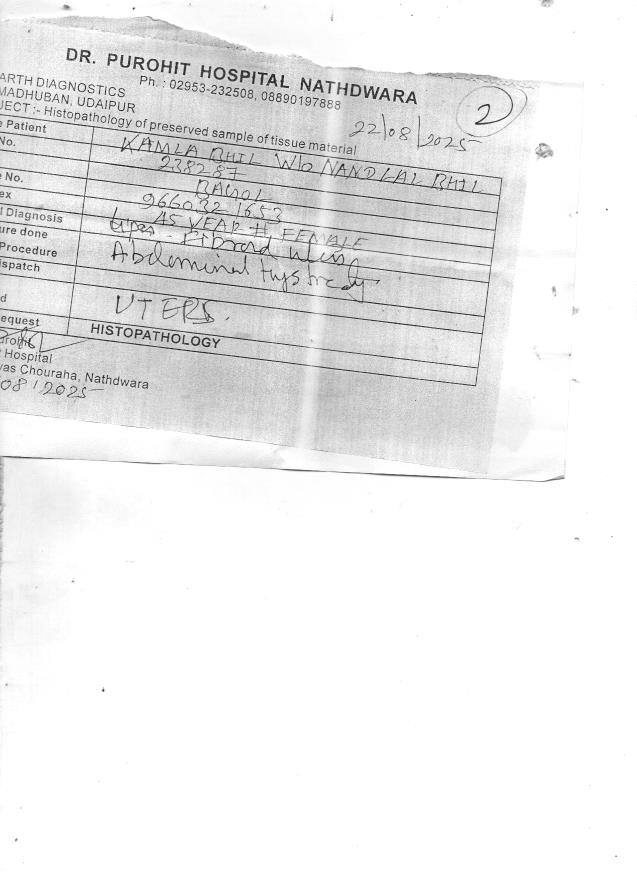 DR. PUROHIT HOSPITAL NATHDWARA
Ph. : 02953-232508, 08890197888
2
ARTH DIAGNOSTICS
MADHUBAN, UDAIPUR
JECT :- Histopathology of preserved sample of tissue material
22/08/2025
e Patient KAMLA BHIL W/o NANDLAL BHIL
No. 238287
BAGOL
e No. 9660321653
ex 45 YEAR H FEMALE
l Diagnosis Fibroid
ure done Abdominal
Procedure
ispatch
UTERS.
d
equest HISTOPATHOLOGY
urohit
Hospital
yas Chouraha, Nathdwara
08/2025